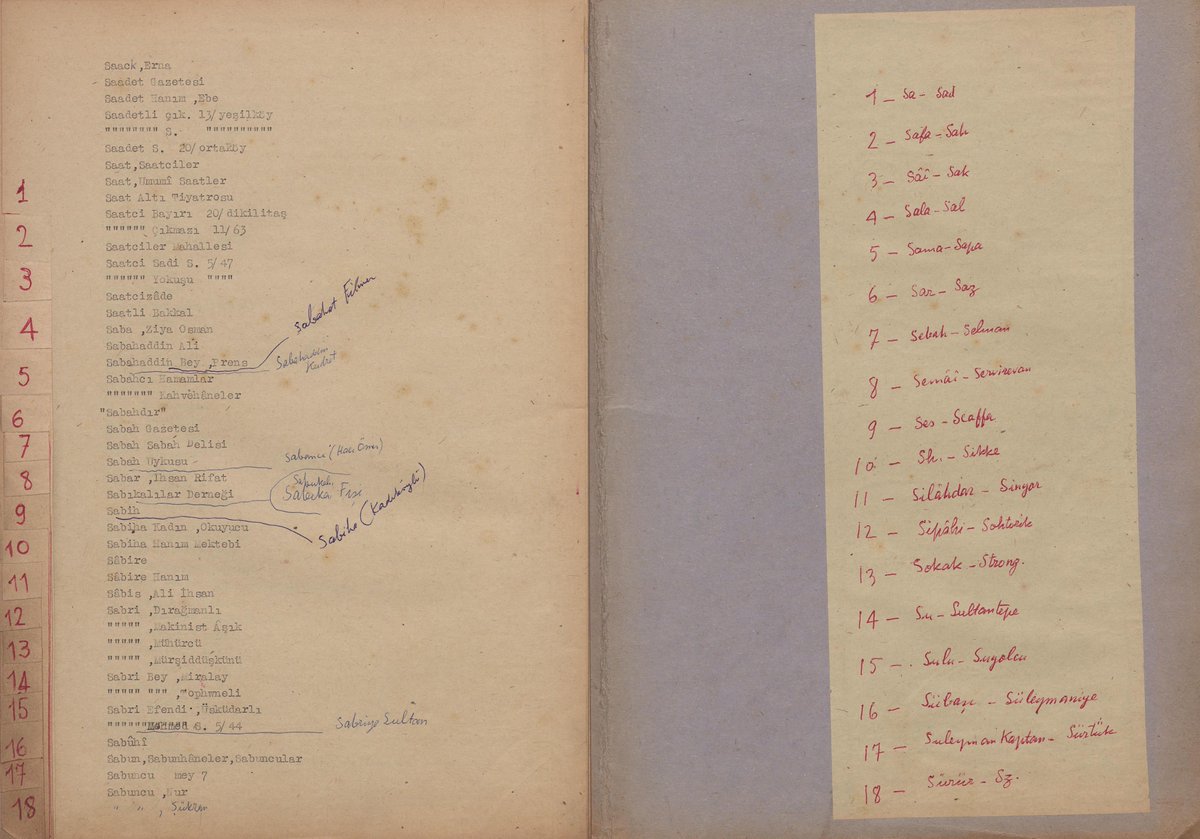 1
2
3
4
5
6
7
8
9
10
11
12
13
14
15
16
17
18
Saack ,Erna
Saadet Gazetesi
Saadet Hanım ,Ebe
Saadetli çık. 13/yeşilköy
""""""" S. """"""""""
Saadet S. 20/ortaköy
Saat,Saatciler
Saat,Umumî Saatler
Saat Altı Tiyatrosu
Saatci Bayırı 20/dikilitaş
"""""" Çıkmazı 11/63
Saatciler Mahallesi
Saatci Sadi S. 5/47
"""""" Yokuşu """"
Saatcizâde
Saatli Bakkal
Saba ,Ziya Osman
Sabahaddin Ali
Sabahaddin Bey ,Prens
Sabahat Filmer
Sabahaddin Kudret
Sabahcı Hamamlar
""""""" Kahvehâneler
"Sabahdır"
Sabah Gazetesi
Sabah Sabah Delisi
Sabah Uykusu
Sabancı (Hacı Ömer)
Sabar ,İhsan Rifat
Sabıkalılar Derneği
Sabıkalı
Sabıka Fişi
Sabih
Sabiha (Kadıköylü)
Sabiha Kadın ,Okuyucu
Sabiha Hanım Mektebi
Sâbire
Sâbire Hanım
Sâbis ,Ali İhsan
Sabri ,Dırağmanlı
""""" ,Makinist Âşık
""""" ,Mühürcü
""""" ,Mürşiddüşkünü
Sabri Bey ,Miralay
""""" """ ,Tophaneli
Sabri Efendi ,Üsküdarlı
"""""" Mehmed S. 5/44
Sabriye Sultan
Sabûhî
Sabun,Sabunhâneler,Sabuncular
Sabuncu mey 7
Sabuncu ,Nur
" " , Şükran
1 – Sa - Sad
2 – Safa - Sah
3 – Sâî - Sak
4 – Sala - Sal
5 – Sama - Sapa
6 – Sar - Saz
7 – Sebah - Selman
8 – Semâî - Servirevan
9 – Ses - Scaffa
10 – Sh. - Sikke
11 – Silâhdar - Sinyor
12 – Sipâhi - Sohtorik
13 – Sokak - Strong.
14 – Su - Sultantepe
15 – Sulu - Suyolcu
16 – Sübaşı - Süleymaniye
17 – Süleyman Kaptan - Sürtük
18 – Sürür - Sz.